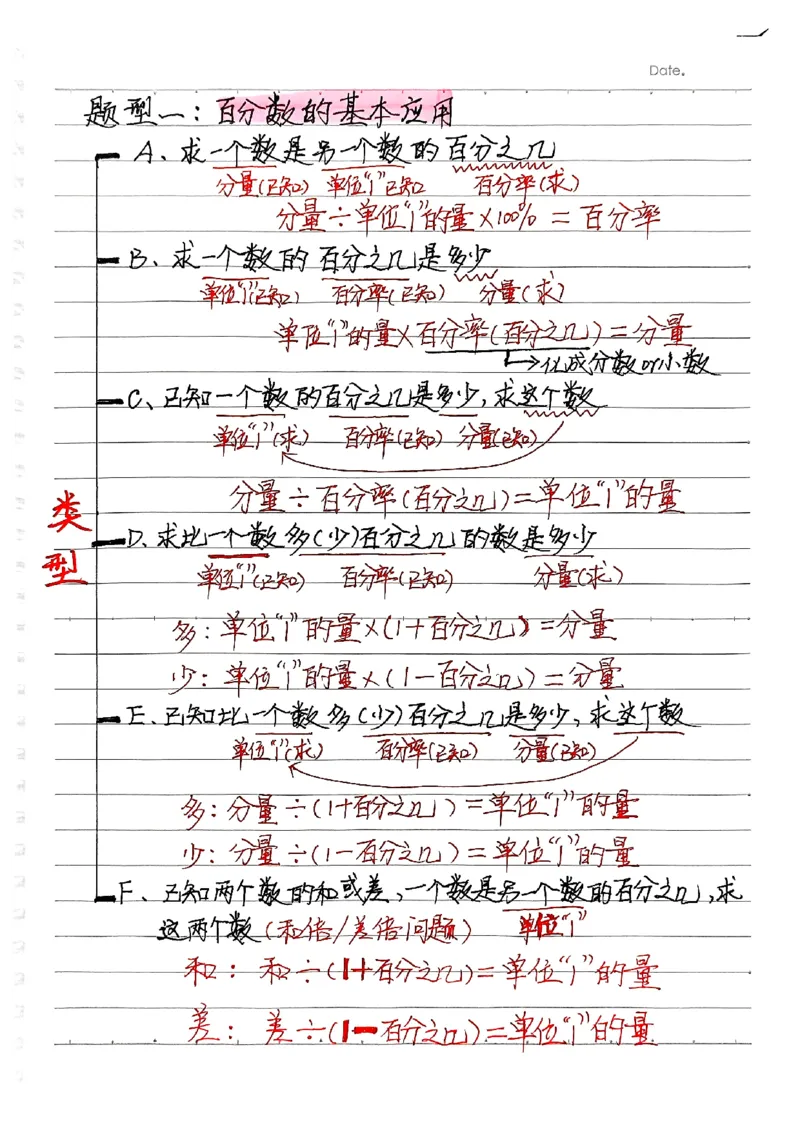 Date.
题型一：百分数的基本应用
A、求一个数是另一个数的百分之几
分量(已知) 单位“1”已知 百分率(求)
分量÷单位“1”的量×100% = 百分率
B、求一个数的百分之几是多少
单位“1”(已知) 百分率(已知) 分量(求)
单位“1”的量×百分率(百分之几)=分量
化成分数or小数
C、已知一个数的百分之几是多少,求这个数
单位“1”(求) 百分率(已知) 分量(已知)
分量÷百分率(百分之几)=单位“1”的量
类型
D、求比一个数多(少)百分之几的数是多少
单位“1”(已知) 百分率(已知) 分量(求)
多：单位“1”的量×(1+百分之几)=分量
少：单位“1”的量×(1-百分之几)=分量
E、已知比一个数多(少)百分之几是多少,求这个数
单位“1”(求) 百分率(已知) 分量(已知)
多：分量÷(1+百分之几)=单位“1”的量
少：分量÷(1-百分之几)=单位“1”的量
F、已知两个数的和或差,一个数是另一个数的百分之几,求
这两个数(和倍/差倍问题) 单位“1”
和：和÷(1+百分之几)=单位“1”的量
差：差÷(1-百分之几)=单位“1”的量